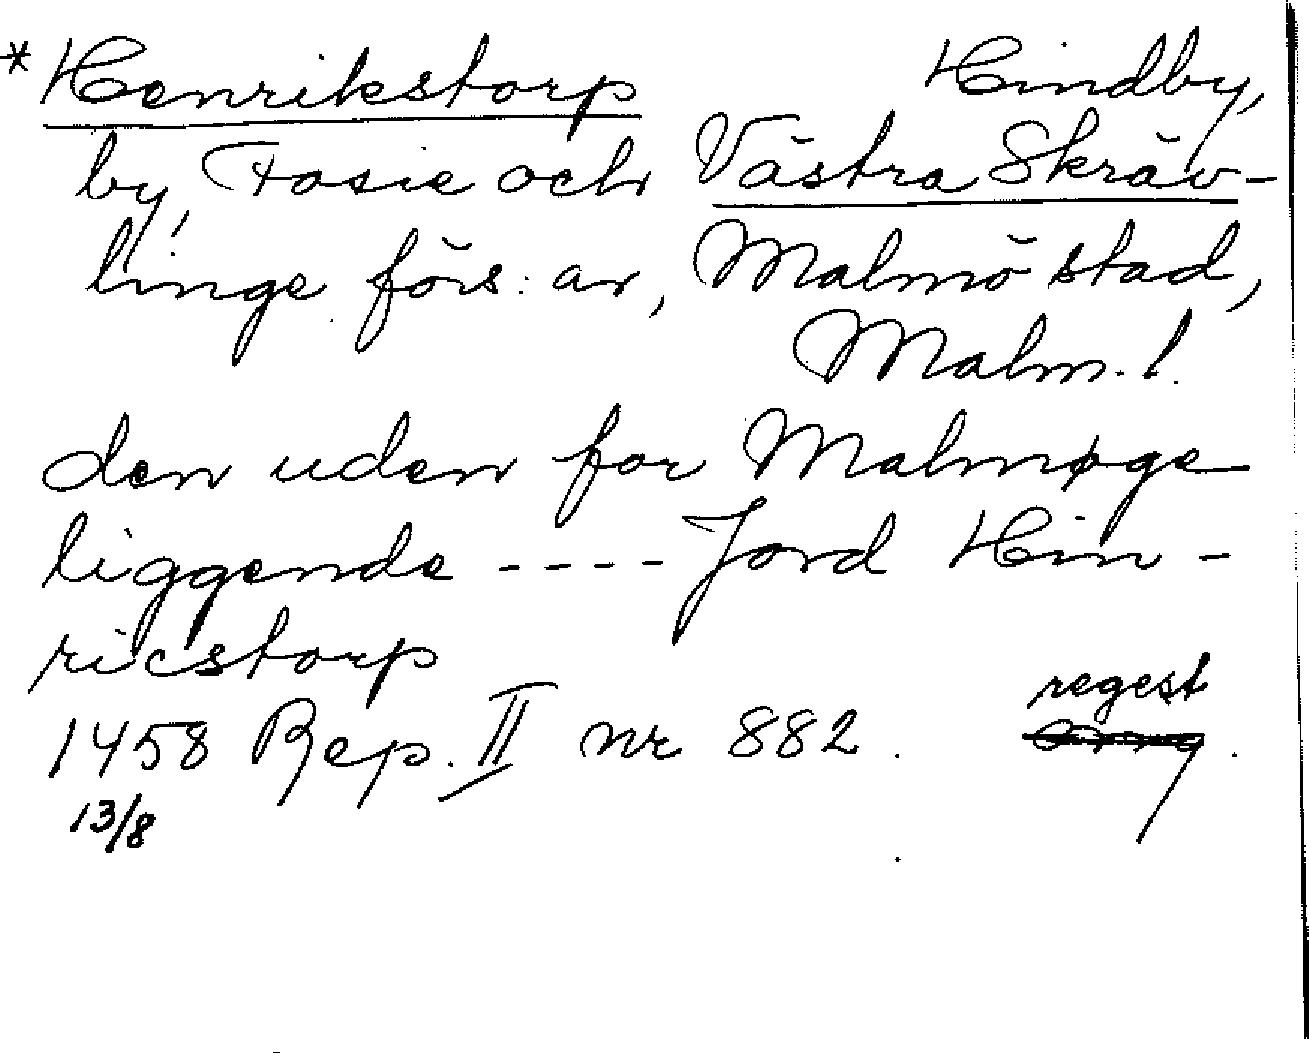 * Henrikstorp Hindby,
by, Fosie och Västra Skräv-
linge förs: ar, Malmö stad,
Malm. l.
den uden for Malmøge
liggende ---- Jord Hin-
ricstorp
regest
1458 Rep. II nr 882.
13/8